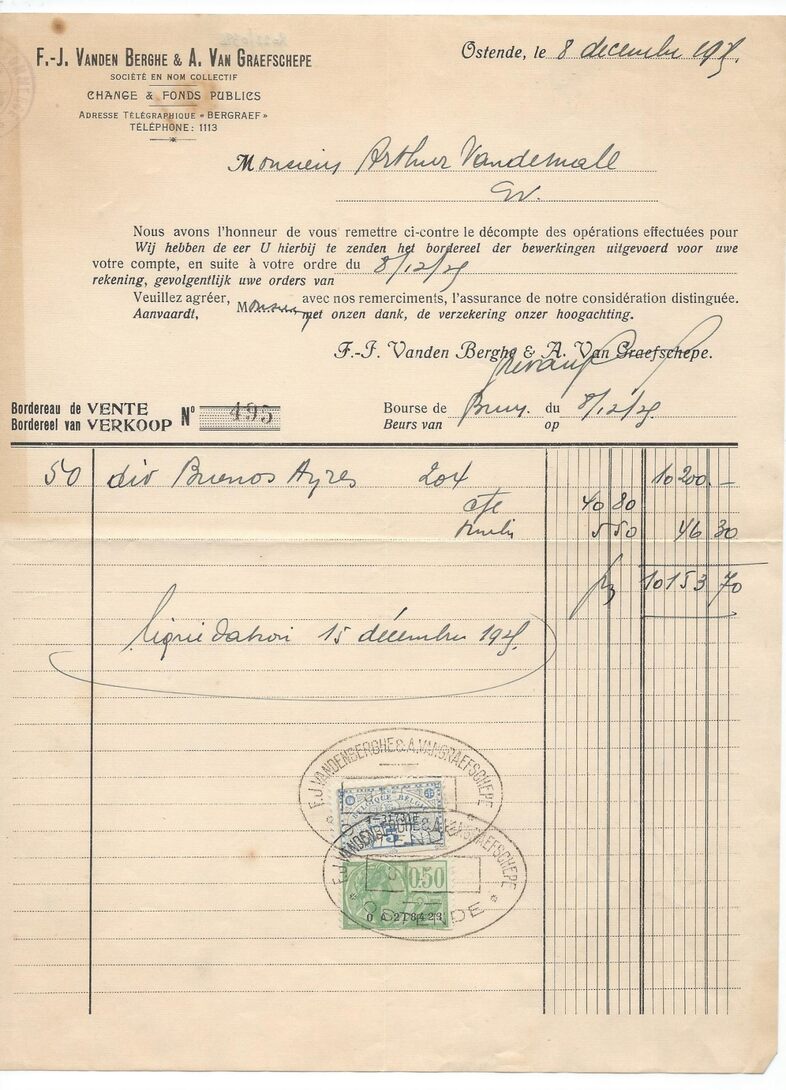 F.-J. VANDEN BERGHE & A. VAN GRAEFSCHEPE
SOCIÉTÉ EN NOM COLLECTIF
CHANGE & FONDS PUBLICS
ADRESSE TÉLÉGRAPHIQUE « BERGRAEF »
TÉLÉPHONE : 1113
Ostende, le 8 decembre
Monsieur Arthur
Nous avons l'honneur de vous remettre ci-contre le décompte des opérations effectuées pour
Wij hebben de eer U hierbij te zenden het bordereel der bewerkingen uitgevoerd voor uwe
votre compte, en suite à votre ordre du 8/12/25
rekening, gevolgentlijk uwe orders van
Veuillez agréer, Monsieur avec nos remerciments, l'assurance de notre considération distinguée.
Aanvaardt, met onzen dank, de verzekering onzer hoogachting.
F.-J. Vanden Berghe & A. Van Graefschepe.
Bordereau de VENTE
Bordereel van VERKOOP N° 495
Bourse de Brux. du 8/12/25
Beurs van op
50 div Buenos Ayres 204 10200.-
cte 40 80
timbre 5 50 46 30
10153 70
liquidation 15 décembre
F.J. VANDENBERGHE & A. VAN GRAEFSCHEPE
BELGIQUE BELGIË
5
F.J. VANDENBERGHE & A. VAN GRAEFSCHEPE
0.50
0 A 278423
OSTENDE